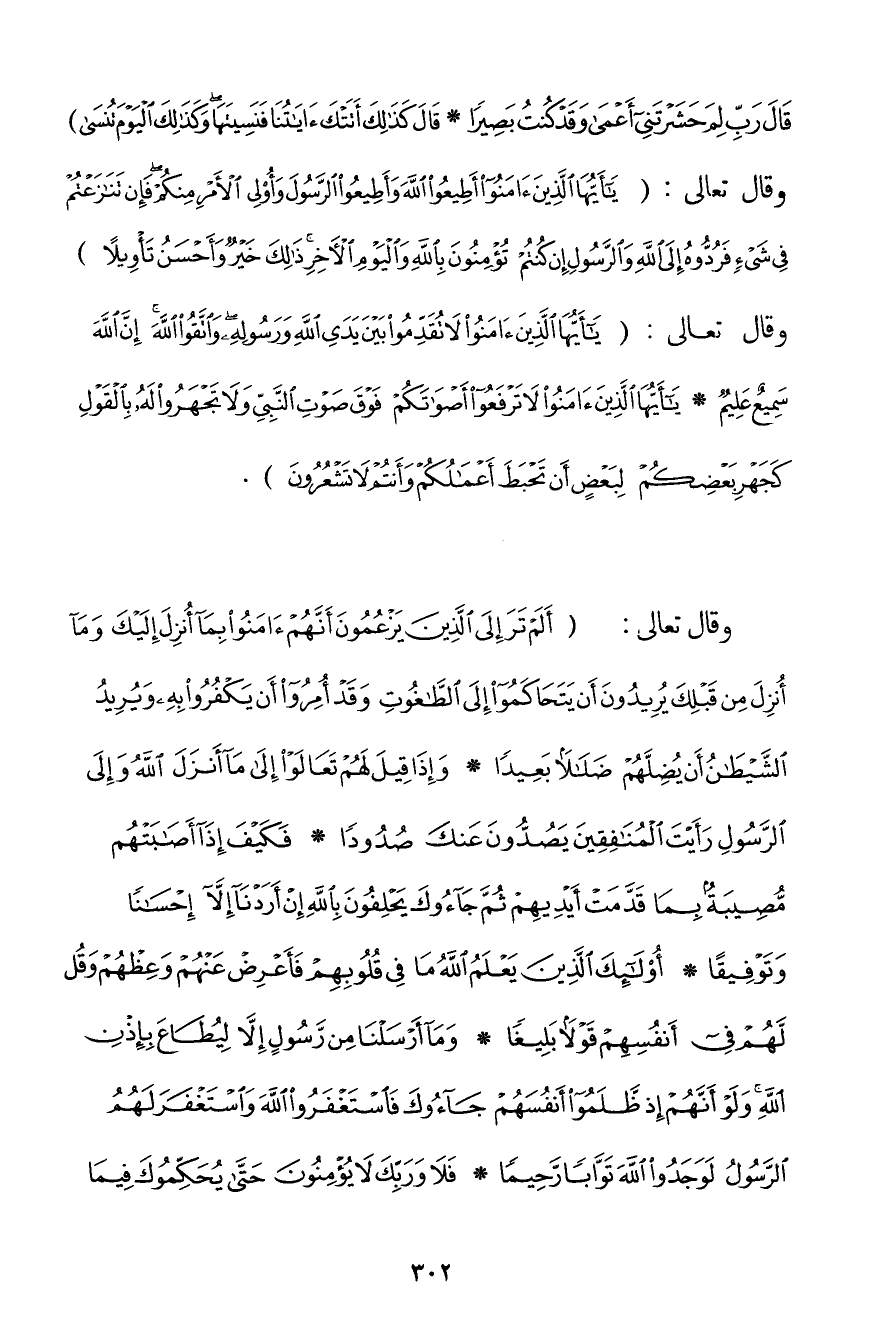 قَالَ رَبِّ لِمَ حَشَرْتَنِىٓ أَعْمَىٰ وَقَدْ كُنتُ بَصِيرًا * قَالَ كَذَٰلِكَ أَتَتْكَ ءَايَٰتُنَا فَنَسِيتَهَا ۖ وَكَذَٰلِكَ ٱلْيَوْمَ تُنسَىٰ )
وقال تعالى : ( يَٰٓأَيُّهَا ٱلَّذِينَ ءَامَنُوٓا۟ أَطِيعُوا۟ ٱللَّهَ وَأَطِيعُوا۟ ٱلرَّسُولَ وَأُو۟لِى ٱلْأَمْرِ مِنكُمْ ۖ فَإِن تَنَٰزَعْتُمْ
فِى شَىْءٍ فَرُدُّوهُ إِلَى ٱللَّهِ وَٱلرَّسُولِ إِن كُنتُمْ تُؤْمِنُونَ بِٱللَّهِ وَٱلْيَوْمِ ٱلْءَاخِرِ ۚ ذَٰلِكَ خَيْرٌ وَأَحْسَنُ تَأْوِيلًا )
وقال تعـالى : ( يَٰٓأَيُّهَا ٱلَّذِينَ ءَامَنُوا۟ لَا تُقَدِّمُوا۟ بَيْنَ يَدَىِ ٱللَّهِ وَرَسُولِهِۦ ۖ وَٱتَّقُوا۟ ٱللَّهَ ۚ إِنَّ ٱللَّهَ
سَمِيعٌ عَلِيمٌ * يَٰٓأَيُّهَا ٱلَّذِينَ ءَامَنُوا۟ لَا تَرْفَعُوٓا۟ أَصْوَٰتَكُمْ فَوْقَ صَوْتِ ٱلنَّبِىِّ وَلَا تَجْهَرُوا۟ لَهُۥ بِٱلْقَوْلِ
كَجَهْرِ بَعْضِكُمْ لِبَعْضٍ أَن تَحْبَطَ أَعْمَٰلُكُمْ وَأَنتُمْ لَا تَشْعُرُونَ ) .
وقال تعالى : ( أَلَمْ تَرَ إِلَى ٱلَّذِينَ يَزْعُمُونَ أَنَّهُمْ ءَامَنُوا۟ بِمَآ أُنزِلَ إِلَيْكَ وَمَآ
أُنزِلَ مِن قَبْلِكَ يُرِيدُونَ أَن يَتَحَاكَمُوٓا۟ إِلَى ٱلطَّٰغُوتِ وَقَدْ أُمِرُوٓا۟ أَن يَكْفُرُوا۟ بِهِۦ وَيُرِيدُ
ٱلشَّيْطَٰنُ أَن يُضِلَّهُمْ ضَلَٰلًۢا بَعِيدًا * وَإِذَا قِيلَ لَهُمْ تَعَالَوْا۟ إِلَىٰ مَآ أَنزَلَ ٱللَّهُ وَإِلَى
ٱلرَّسُولِ رَأَيْتَ ٱلْمُنَٰفِقِينَ يَصُدُّونَ عَنكَ صُدُودًا * فَكَيْفَ إِذَآ أَصَٰبَتْهُم
مُّصِيبَةٌۢ بِمَا قَدَّمَتْ أَيْدِيهِمْ ثُمَّ جَآءُوكَ يَحْلِفُونَ بِٱللَّهِ إِنْ أَرَدْنَآ إِلَّآ إِحْسَٰنًا
وَتَوْفِيقًا * أُو۟لَٰٓئِكَ ٱلَّذِينَ يَعْلَمُ ٱللَّهُ مَا فِى قُلُوبِهِمْ فَأَعْرِضْ عَنْهُمْ وَعِظْهُمْ وَقُل
لَّهُمْ فِىٓ أَنفُسِهِمْ قَوْلًۢا بَلِيغًا * وَمَآ أَرْسَلْنَا مِن رَّسُولٍ إِلَّا لِيُطَاعَ بِإِذْنِ
ٱللَّهِ ۚ وَلَوْ أَنَّهُمْ إِذ ظَّلَمُوٓا۟ أَنفُسَهُمْ جَآءُوكَ فَٱسْتَغْفَرُوا۟ ٱللَّهَ وَٱسْتَغْفَرَ لَهُمُ
ٱلرَّسُولُ لَوَجَدُوا۟ ٱللَّهَ تَوَّابًا رَّحِيمًا * فَلَا وَرَبِّكَ لَا يُؤْمِنُونَ حَتَّىٰ يُحَكِّمُوكَ فِيمَا
٣٠٢